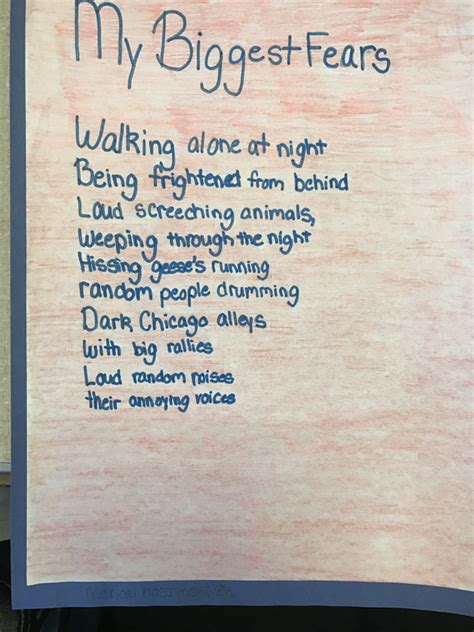 My Biggest Fears
Walking alone at night
Being frightened from behind
Loud screeching animals,
Weeping through the night
Hissing geese's running
random people drumming
Dark Chicago alleys
with big rallies
Loud random noises
their annoying voices